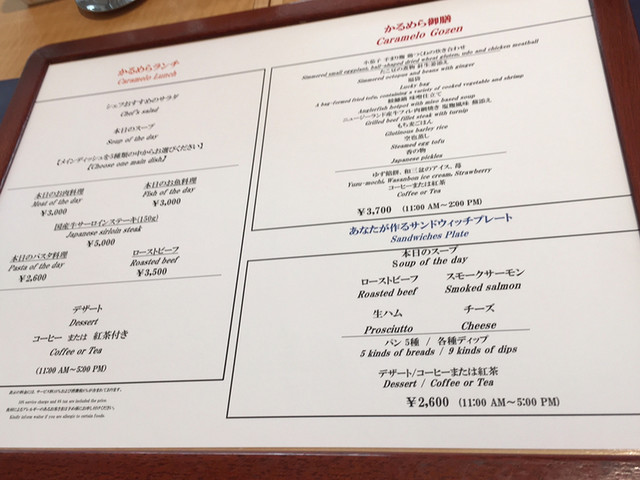 かるめらランチ
Caramelo Lunch
シェフおすすめのサラダ
Chef's salad
本日のスープ
Soup of the day
【メインディッシュを5種類の中からお選びください】
【Choose one main dish】
本日のお肉料理
Meat of the day
￥3,000
本日のお魚料理
Fish of the day
￥3,000
国産牛サーロインステーキ(150g)
Japanese sirloin steak
￥5,000
本日のパスタ料理
Pasta of the day
￥2,600
ローストビーフ
Roasted beef
￥3,500
デザート
Dessert
コーヒー または 紅茶付き
Coffee or Tea
(11:00 AM～5:00 PM)
Kindly inform waiter if you are allergic to certain foods.
かるめら御膳
Caramelo Gozen
Simmered small eggplant, ball-shaped dried wheat gluten, udo and chicken meatball
Simmered octopus and beans with ginger
福袋
Lucky bag
A bag-formed fried tofu, containing a variety of cooked vegetable and shrimp
Anglerfish hotpot with miso based soup
Grilled beef fillet steak with turnip
もち麦ごはん
Glutinous barley rice
空也蒸し
Steamed egg tofu
香の物
Japanese pickles
ゆず餡餅、和三盆のアイス、苺
Yuzu-mochi, Wasanbon ice cream, Strawberry
コーヒーまたは紅茶
Coffee or Tea
￥3,700 (11:00 AM～2:00 PM)
あなたが作るサンドウィッチプレート
Sandwiches Plate
本日のスープ
Soup of the day
ローストビーフ
Roasted beef
スモークサーモン
Smoked salmon
生ハム
Prosciutto
チーズ
Cheese
パン 5種 / 各種ディップ
5 kinds of breads / 9 kinds of dips
デザート/コーヒーまたは紅茶
Dessert / Coffee or Tea
￥2,600 (11:00 AM～5:00 PM)